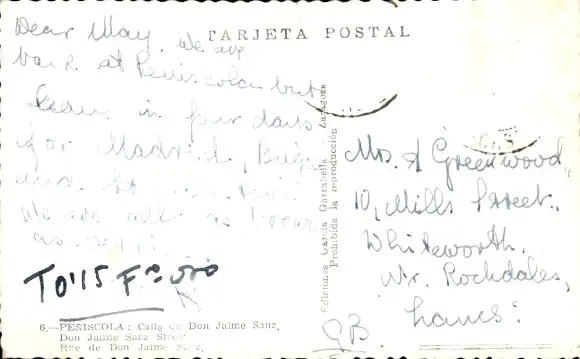 TARJETA POSTAL
Dear May. We are
back at Peniscola but
leave in four days
for Madrid,
and
We are all as brown
as
Mrs. A Greenwood,
10, Mills Street.,
Whitworth.
Nr. Rochdales,
Lancs:
GB.
Ediciones García Garrabella Zaragoza
Prohibida la reproducción
6.—PEÑISCOLA: Calle de Don Jaime Sanz,
Don Jaime Sanz Street
Rue de Don Jaime